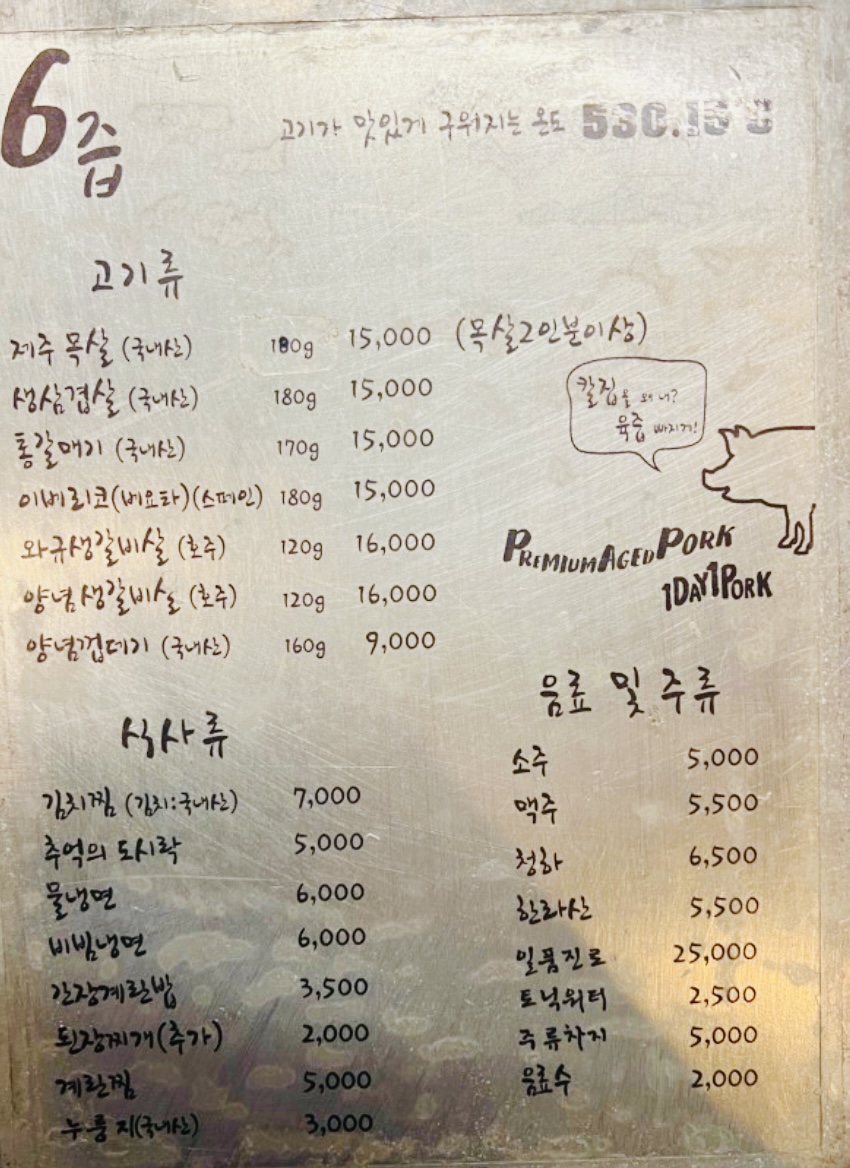 6즙
고기가 맛있게 구워지는 온도 530.15°C
고기류
제주 목살 (국내산) 180g 15,000 (목살2인분이상)
생삼겹살 (국내산) 180g 15,000
통갈매기 (국내산) 170g 15,000
이베리코(베요타)(스페인) 180g 15,000
와규생갈비살 (호주) 120g 16,000
양념생갈비살 (호주) 120g 16,000
양념껍데기 (국내산) 160g 9,000
칼집을 왜 내?
육즙 빠지게!
PREMIUM AGED PORK
1DAY1PORK
식사류
김치찜 (김치:국내산) 7,000
추억의 도시락 5,000
물냉면 6,000
비빔냉면 6,000
간장계란밥 3,500
된장찌개(추가) 2,000
계란찜 5,000
누룽지(국내산) 3,000
음료 및 주류
소주 5,000
맥주 5,500
청하 6,500
한라산 5,500
일품진로 25,000
토닉워터 2,500
주류차지 5,000
음료수 2,000